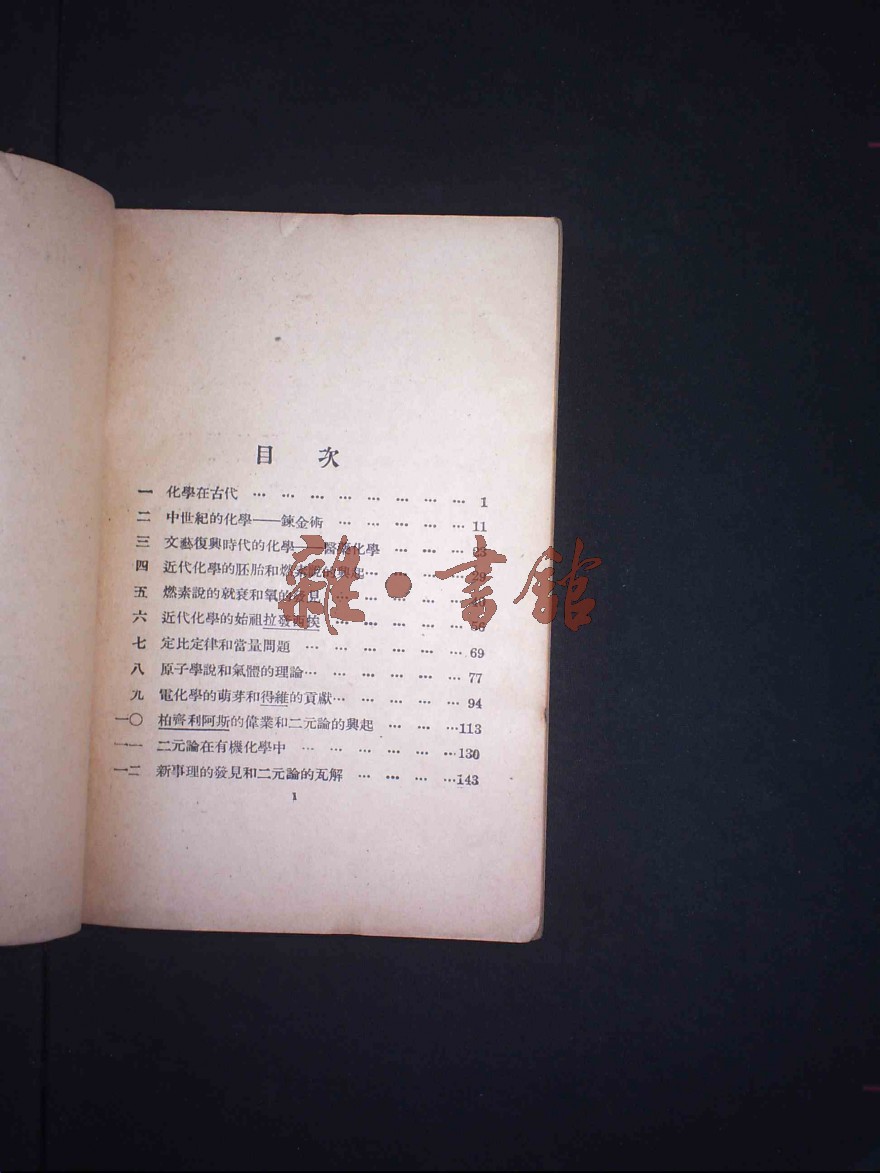 目 次
一 化學在古代 … … … … … … … … 1
二 中世紀的化學——鍊金術 … … … … … 11
三 文藝復興時代的化學——醫藥化學 … … … 23
四 近代化學的胚胎和燃素說的興起… … … … 29
五 燃素說的就衰和氧的發見 … … … … … 40
六 近代化學的始祖拉發西埃 … … … … … 56
七 定比定律和當量問題 … … … … … … 69
八 原子學說和氣體的理論… … … … … … 77
九 電化學的萌芽和得維的貢獻… … … … … 94
一〇 柏齊利阿斯的偉業和二元論的興起 … … …113
一一 二元論在有機化學中 … … … … … …130
一二 新事理的發見和二元論的瓦解 … … … …143
1
雜·書館